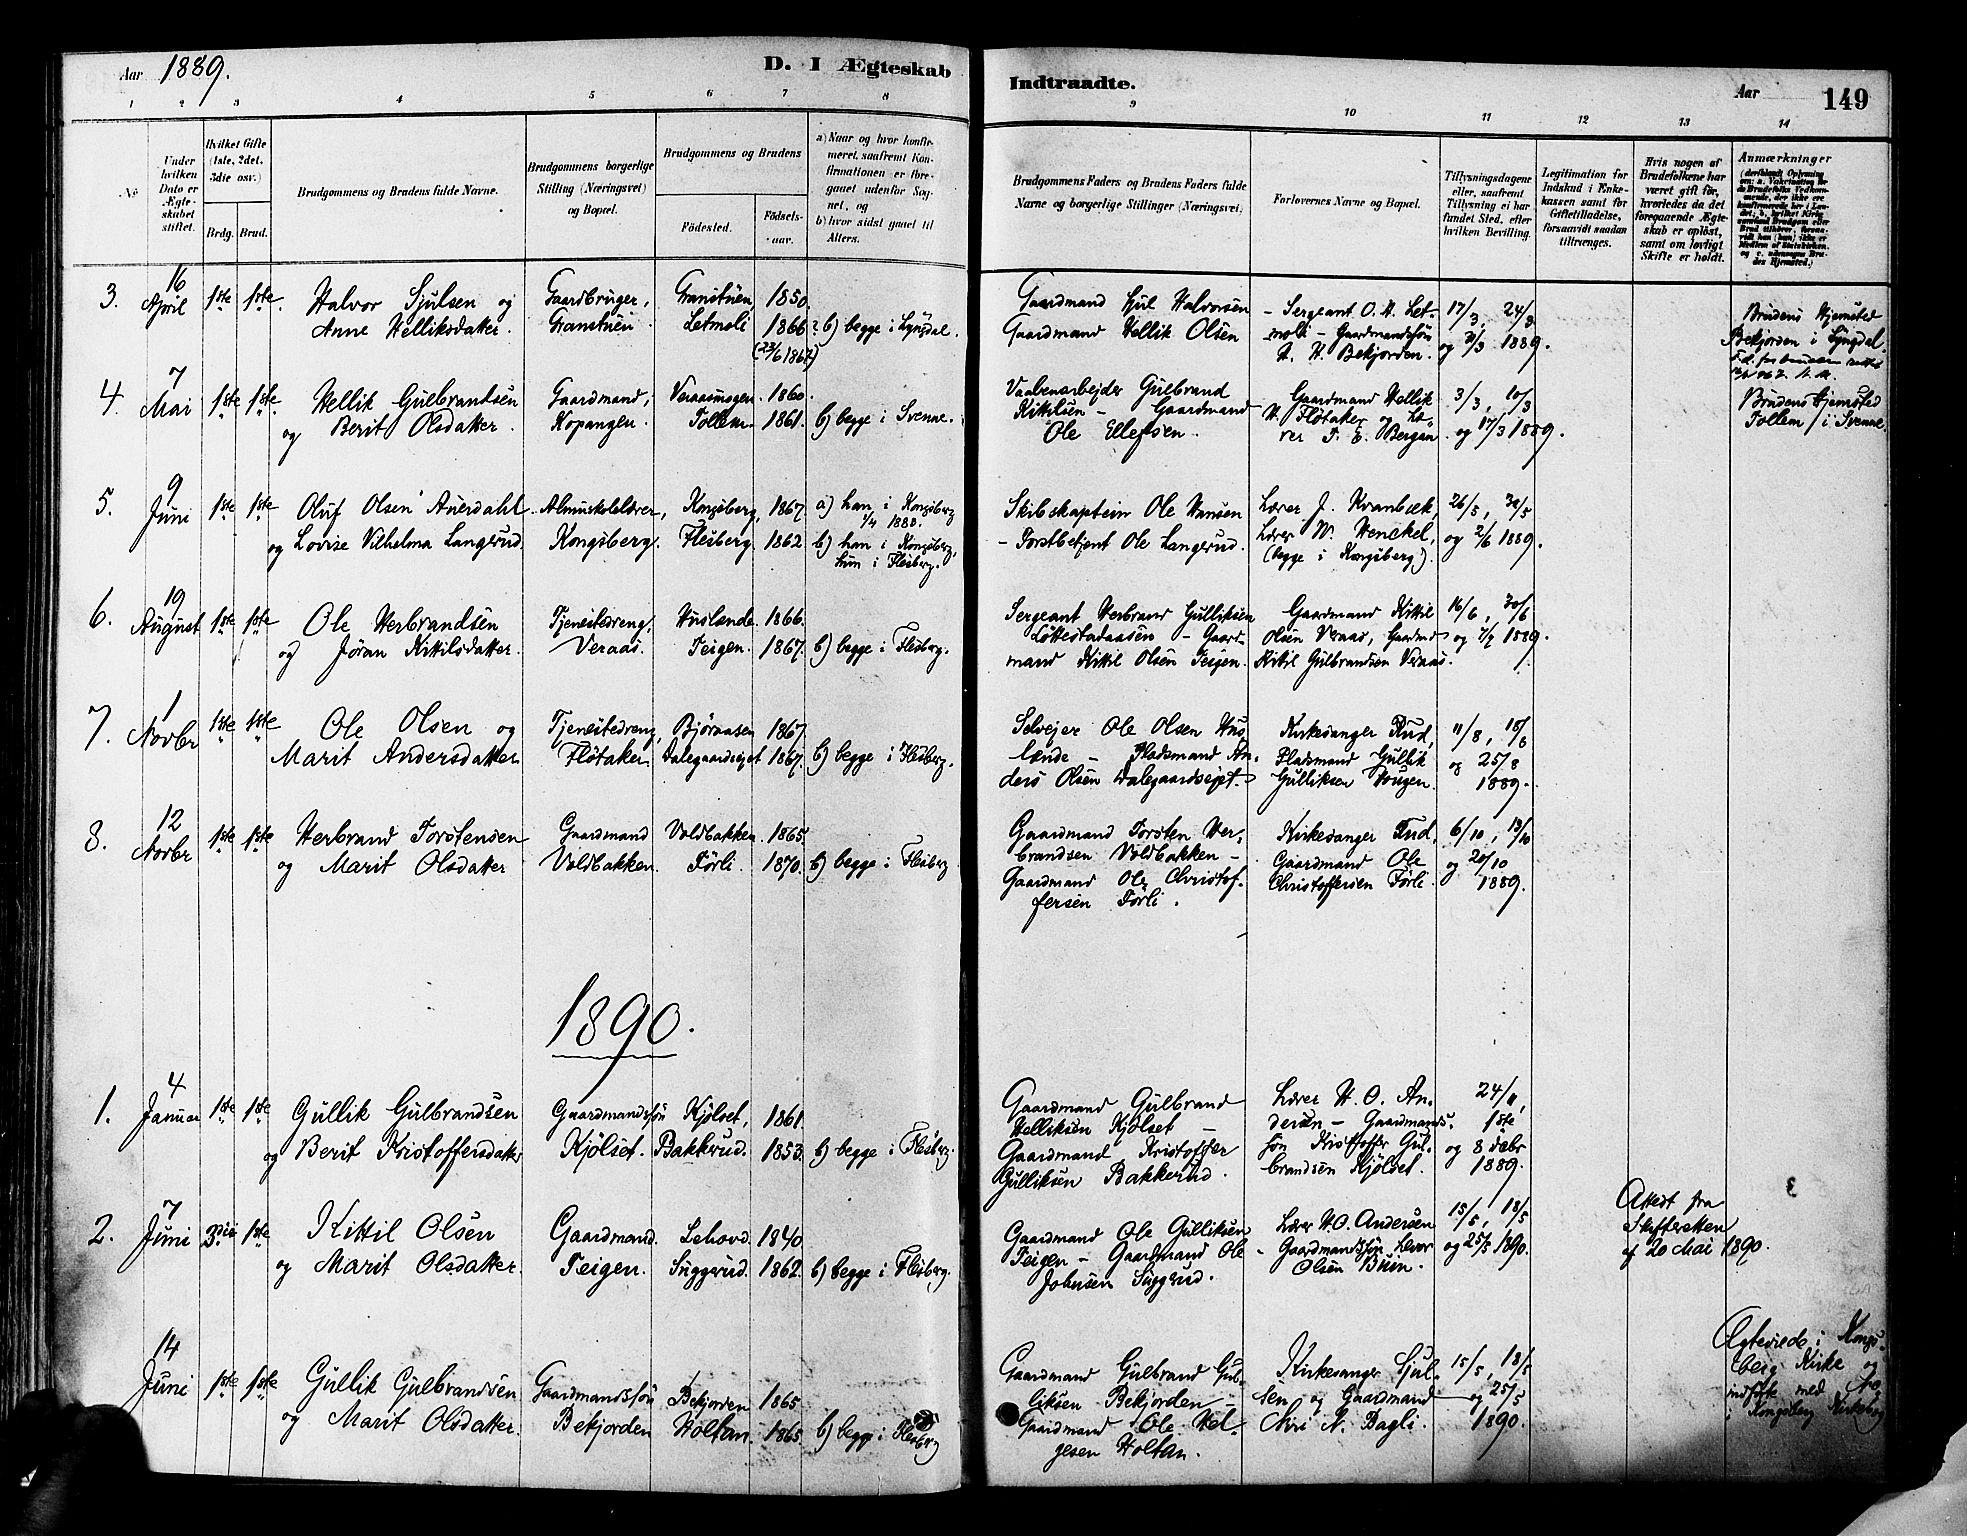 Aar 1889.
D. I Ægteskab
Indtraadte.
Aar
149
1 2 3 4 5 6 7 8 9 10 11 12 13 14
No
Under hvilken Dato er Ægteskabet stiftet.
Hvilket Gifte (1ste, 2det, 3die osv.)
Brdg. Brud.
Brudgommens og Brudens fulde Navne.
Brudgommens borgerlige Stilling (Næringsvei) og Bopæl.
Brudgommens og Brudens
Födested.
Födsels-aar.
a) Naar og hvor konfirmeret, saafremt Konfirmationen er foregaaet udenfor Sognet, og
b) hvor sidst gaaet til Alters.
Brudgommens Faders og Brudens Faders fulde Navne og borgerlige Stillinger (Næringsvei)
Forlovernes Navne og Bopæl.
Tillysningsdagene eller, saafremt Tillysning ei har fundet Sted, efter hvilken Bevilling.
Legitimation for Indskud i Enkekassen samt for Giftetilladelse, forsaavidt saadan tiltrænges.
Hvis nogen af Brudefolkene har været gift för, hvorledes da det foregaaende Ægteskab er oplöst, samt om lovligt Skifte er holdt.
Anmærkninger
3. 16 April 1ste 1ste
Halvor Sjulsen og
Anne Helliksdatter.
Gaardbruger,
Granstuen.
Granstuen 1850.
Letmoli 1866
(23/6 1867)
b) begge i Lyngdal.
Gaardmand Sjul Halvorsen
Gaardmand Hellik Olsen
- Sergeant O. H. Let-
moli - Gaardmandssøn
H. H. Bekjorden.
17/3, 24/3
og 31/3 1889.
Brudens Hjemsted
Bekjorden i Lyngdal.
4. 7 Mai 1ste 1ste
Hellik Gulbrandsen
og Berit Olsdatter.
Gaardmand,
Kopangen.
Veraasmogen. 1860.
Tollem. 1861.
b) begge i Svenne.
Vaabenarbejder Gulbrand
Kittilsen - Gaardmand
Ole Ellefsen.
Gaardmand Hellik
H. Fløtaker og Læ-
rer T. E. Bergan.
3/3, 10/3
og 17/3 1889.
Brudens Hjemsted
Tollem i Svenne.
5. 9 Juni 1ste 1ste
Oluf Olsen Auerdahl
og Lovise Vilhelma Langerud.
Almuskolelærer,
Kongsberg.
Kongsberg, 1867.
Flesberg. 1862
a) han i Kongsberg
1/4 1883.
b) han i Kongsberg,
hun i Flesberg.
Skibskaptein Ole Hansen
- Forstbetjent Ole Langerud.
Lærer J. Kvanbæk,
Lærer W. Henckel,
(begge i Kongsberg).
26/5, 30/5
og 2/6 1889.
6. 19 August 1ste 1ste
Ole Herbrandsen
og Jøran Kittilsdatter.
Tjenestedreng,
Veraas.
Huslænde. 1866.
Teigen. 1867.
b) begge i Flesberg.
Sergeant Herbrand Gulliksen
Løttestadaasen - Gaard-
mand Kittil Olsen Teigen.
Gaardmand Kittil
Olsen Veraas, Gaardmd
Kittil Gulbrandsen Veraas.
16/6, 30/6
og 7/7 1889.
7. 1 Novbr 1ste 1ste
Ole Olsen og
Marit Andersdatter
Tjenestedreng,
Fløtaker
Bjøraasen 1867.
Dalegaardsejet 1867.
b) begge i Flesberg.
Selvejer Ole Olsen Hus-
lænde - Pladsmand An-
ders Olsen Dalegaardsejet.
Kirkesanger Rud,
Pladsmand Gullik
Gulliksen Haugen.
11/8, 18/8
og 25/8
1889.
8. 12 Novbr 1ste 1ste
Herbrand Torstensen
og Marit Olsdatter
Gaardmand
Voldbakken.
Voldbakken. 1865.
Førli. 1870.
b) begge i Flesberg
Gaardmand Torsten Her-
brandsen Voldbakken -
Gaardmand Ole Christof-
fersen Førli.
Kirkesanger Rud,
Gaardmand Ole
Christoffersen Førli.
6/10, 13/10
og 20/10
1889.
1890.
1. 4 Januar 1ste 1ste
Gullik Gulbrandsen
og Berit Kristoffersdatter
Gaardmandssøn
Kjølset.
Kjølset, 1861.
Bakkerud. 1853.
b) begge i Flesberg.
Gaardmand Gulbrand
Helliksen Kjølset -
Gaardmand Kristoffer
Gulliksen Bakkerud.
Lærer H. O. An-
dersen - Gaardmands-
søn Kristoffer Gul-
brandsen Kjølset.
24/11,
1ste
og 8 Debr
1889.
2. 7 Juni 3die 1ste
Kittil Olsen
og Marit Olsdatter.
Gaardmand.
Teigen.
Lehovd. 1840.
Suggerud. 1862.
b) begge i Flesberg.
Gaardmand Ole Gulliksen
Teigen - Gaardmand Ole
Johnsen Suggrud.
Lærer H. O. Andersen
- Gaardmandssøn Levor
Olsen Buin.
15/5, 18/5
og 25/5 1890.
Attest fra
Skifteretten
af 20 Mai 1890.
14 Juni 1ste 1ste
Gullik Gulbrandsen
og Marit Olsdatter.
Gaardmandssøn
Bekjorden
Bekjorden 1865.
Holtan. 1865.
b) begge i Flesberg
Gaardmand Gulbrand Gul-
liksen Bekjorden -
Gaardmand Ole Hel-
gesen Holtan.
Kirkesanger Sjul-
sen og Gaardmand
N. Bagli.
15/5, 18/5
og 25/5
1890.
Ægteviede i Kongs-
berg Kirke og
indført med
i Kongsberg Kirkebog